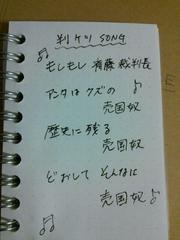 判ケツ SONG
もしもし 斉藤 裁判長
アンタは クズの
売国奴
歴史に 残る
売国奴
どおして そんなに
売国奴